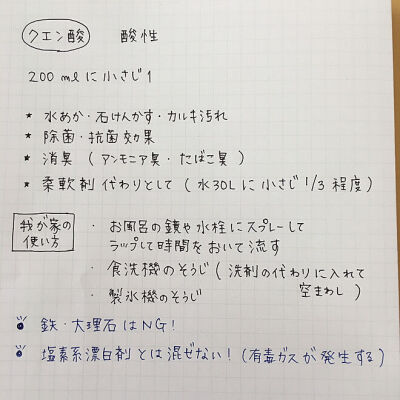 クエン酸 酸性
200mlに小さじ1
* 水あか・石けんかす・カルキ汚れ
* 除菌・抗菌効果
* 消臭(アンモニア臭・たばこ臭)
* 柔軟剤代わりとして(水30Lに小さじ1/3程度)
我が家の使い方
・お風呂の鏡や水栓にスプレーして
ラップして時間をおいて流す
・食洗機のそうじ(洗剤の代わりに入れて
空まわし)
・製氷機のそうじ
鉄・大理石はNG!
塩素系漂白剤とは混ぜない!(有毒ガスが発生する)